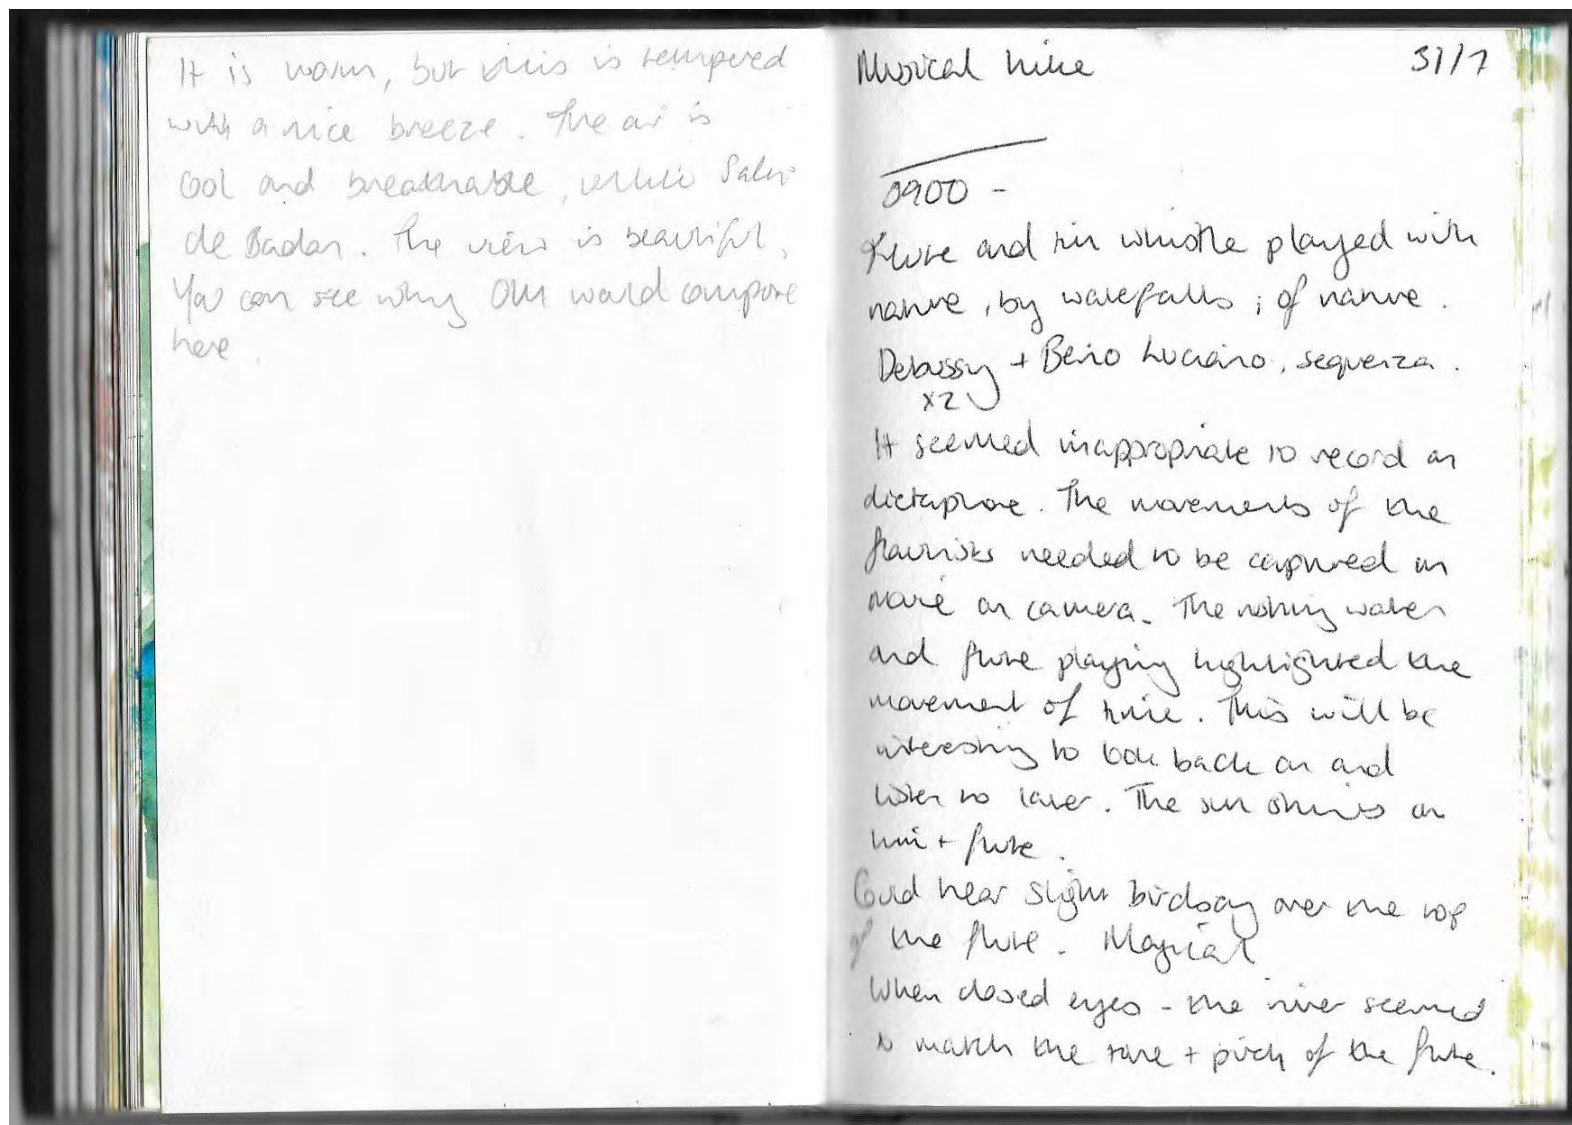 It is warm, but this is tempered
with a nice breeze. The air is
cool and breathable, unlike Salin
de Badan. The view is beautiful,
You can see why OM would compose
here.
Musical hike 31/7
0900 -
Flute and tin whistle played with
nature, by waterfalls; of nature.
Debussy + Berio Luciano, sequenza.
x2
It seemed inappropriate to record on
dictaphone. The movements of the
flautists needed to be captured on
movie on camera. The rushing water
and flute playing highlighted the
movement of time. This will be
interesting to look back on and
listen to later. The sun shines on
him + flute.
Could hear slight birdsong over the top
of the flute. Magical
When closed eyes - the river seemed
to match the tone + pitch of the flute.